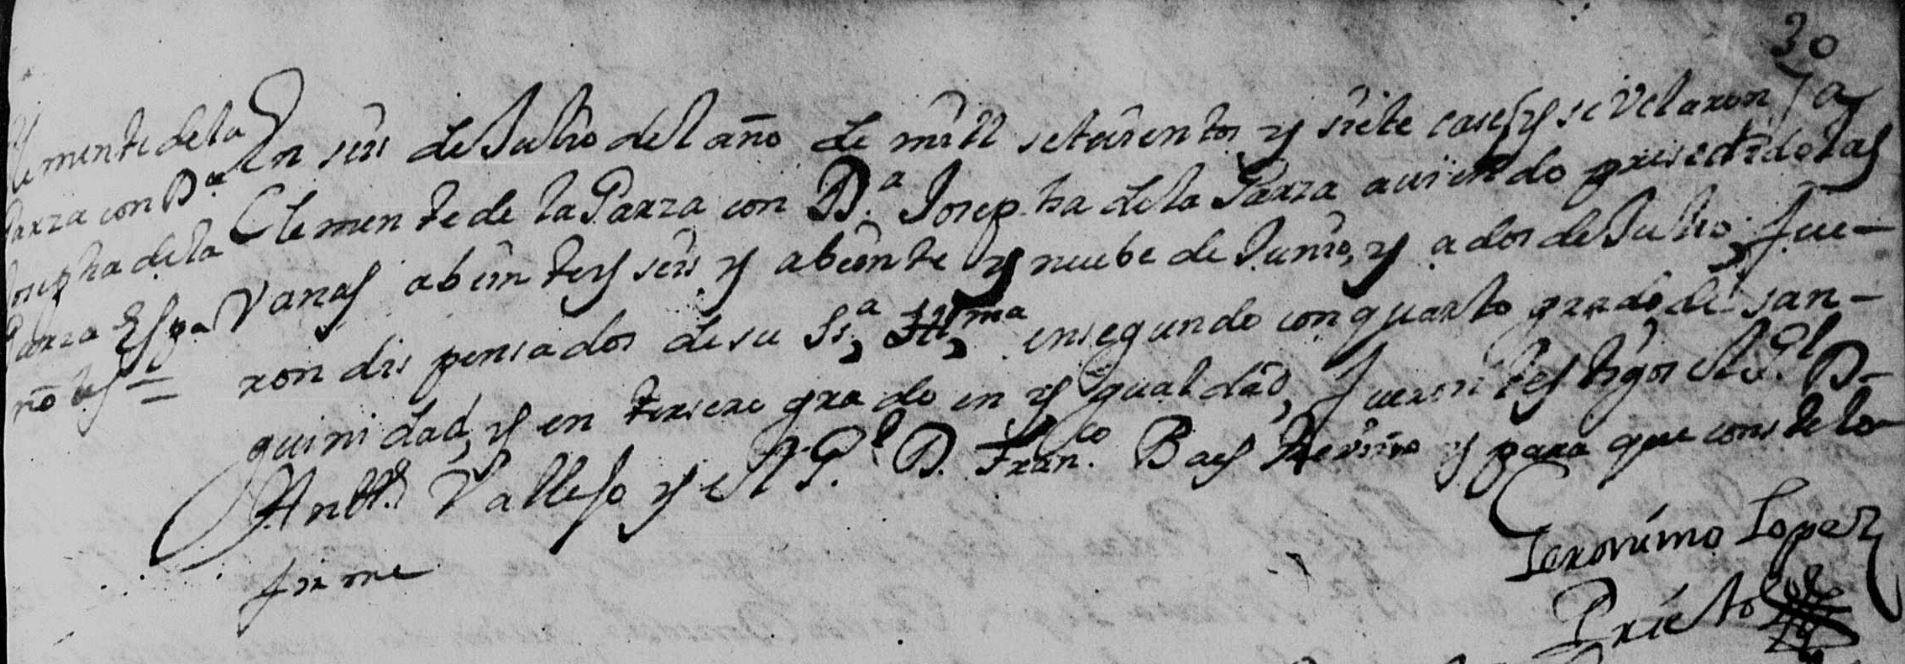 30
Clemente de la
Garza con Da
Josepha de la
Garza Espa
ñoles =
En seis de Julio del año de mill setesientos y siete case y se velaron, a
Clemente de la Garza con Da. Josepha de la Garza auiendo presedido las
Vanas abeinte y seis y abeinte y nuebe de Junio, y a dos de Julio, fue-
ron dispensados de su Ssa, Illma, en segundo con quarto grado de san-
guinidad, y en tersero grado en ygualdad, fueron testigos el Gl. D.
Antto. Vallejo y el Gl. D. Franco. Baes Treviño y para que conste lo
firme
Geronimo Lopez
Prieto